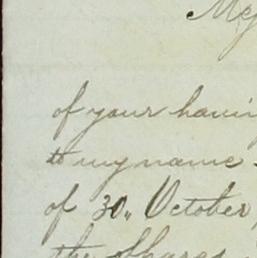 My
of your havin
to my name
of 30. October,
the